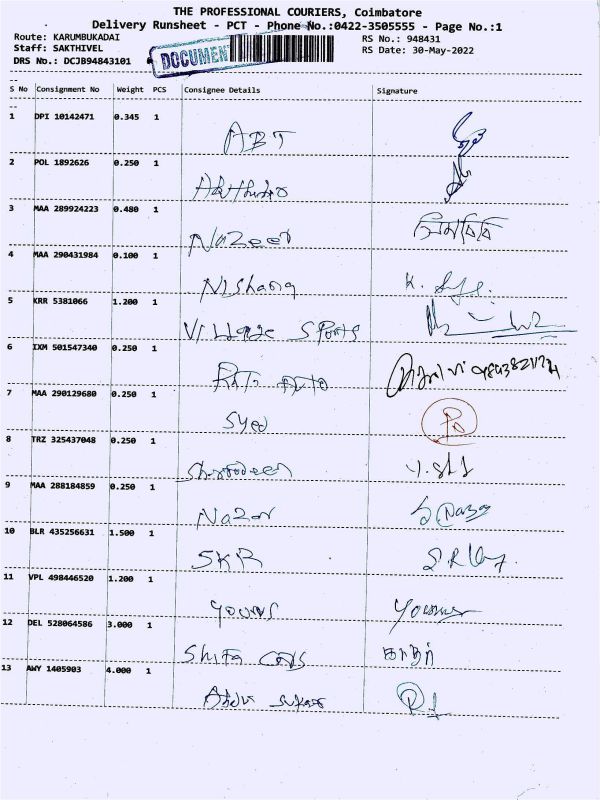 THE PROFESSIONAL COURIERS, Coimbatore
Delivery Runsheet - PCT - Phone No.:0422-3505555 - Page No.:1
Route: KARUMBUKADAI RS No.: 948431
Staff: SAKTHIVEL RS Date: 30-May-2022
DRS No.: DCJB94843101 DOCUMEN
S No Consignment No Weight PCS Consignee Details Signature
1 DPI 10142471 0.345 1
ABT
2 POL 1892626 0.250 1
3 MAA 289924223 0.480 1
Nazeer
4 MAA 290431984 0.100 1
Nishana K.
5 KRR 5381066 1.200 1
Village Sports
6 IXM 501547340 0.250 1
Auto
7 MAA 290129680 0.250 1
Syed
8 TRZ 325437048 0.250 1
9 MAA 288184859 0.250 1
Nazar
10 BLR 435256631 1.500 1
SKR
11 VPL 498446520 1.200 1
Younus
12 DEL 528064586 3.000 1
Shifa காதர்
13 AWY 1405903 4.000 1
Abdul